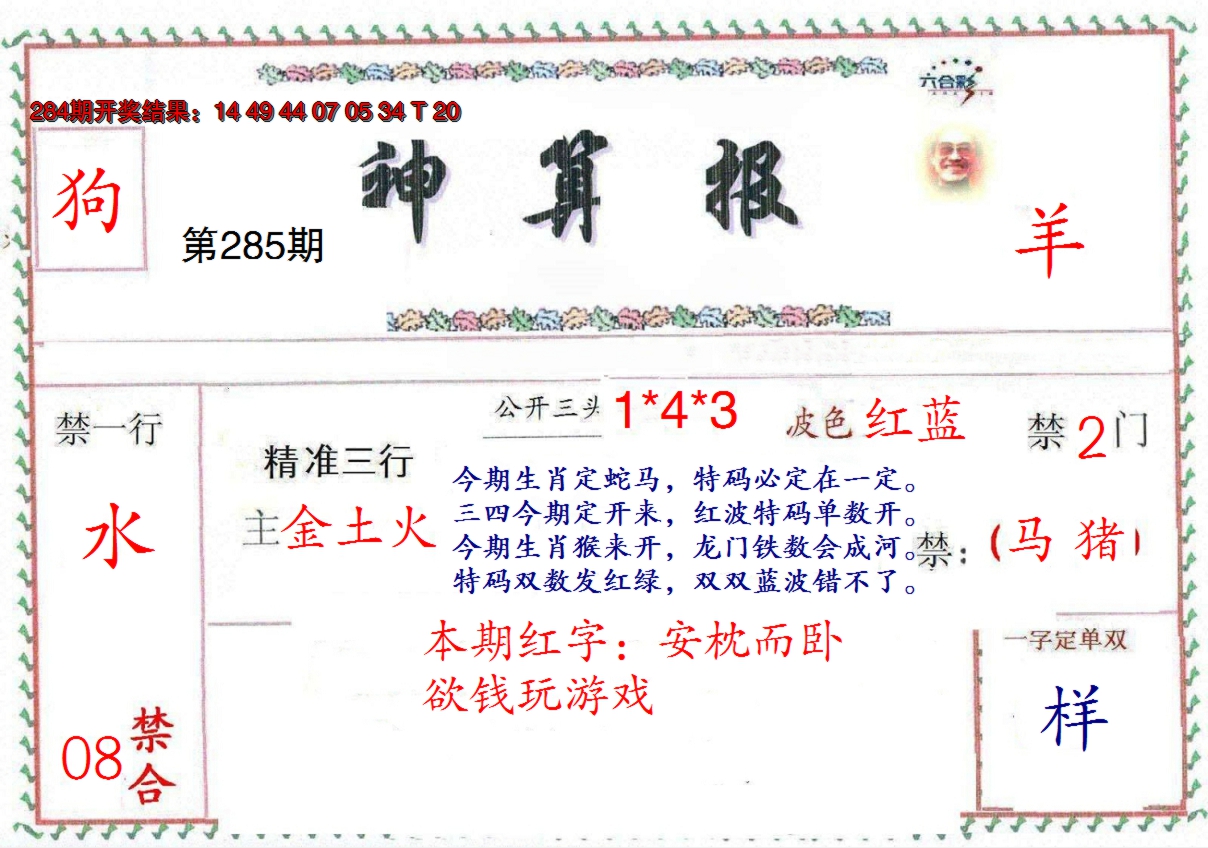 284期开奖结果：14 49 44 07 05 34 T 20
六合彩
狗
神算报
第285期
羊
禁一行
水
08
禁合
精准三行
主金土火
公开三头 1*4*3
波色 红蓝
禁2门
今期生肖定蛇马，特码必定在一定。
三四今期定开来，红波特码单数开。
今期生肖猴来开，龙门铁数会成河。
特码双数发红绿，双双蓝波错不了。
禁：（马 猪）
本期红字：安枕而卧
欲钱玩游戏
一字定单双
样